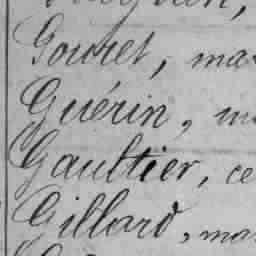 Gouret, ma
Guérin, m
Gaultier, ce
Gillard, ma